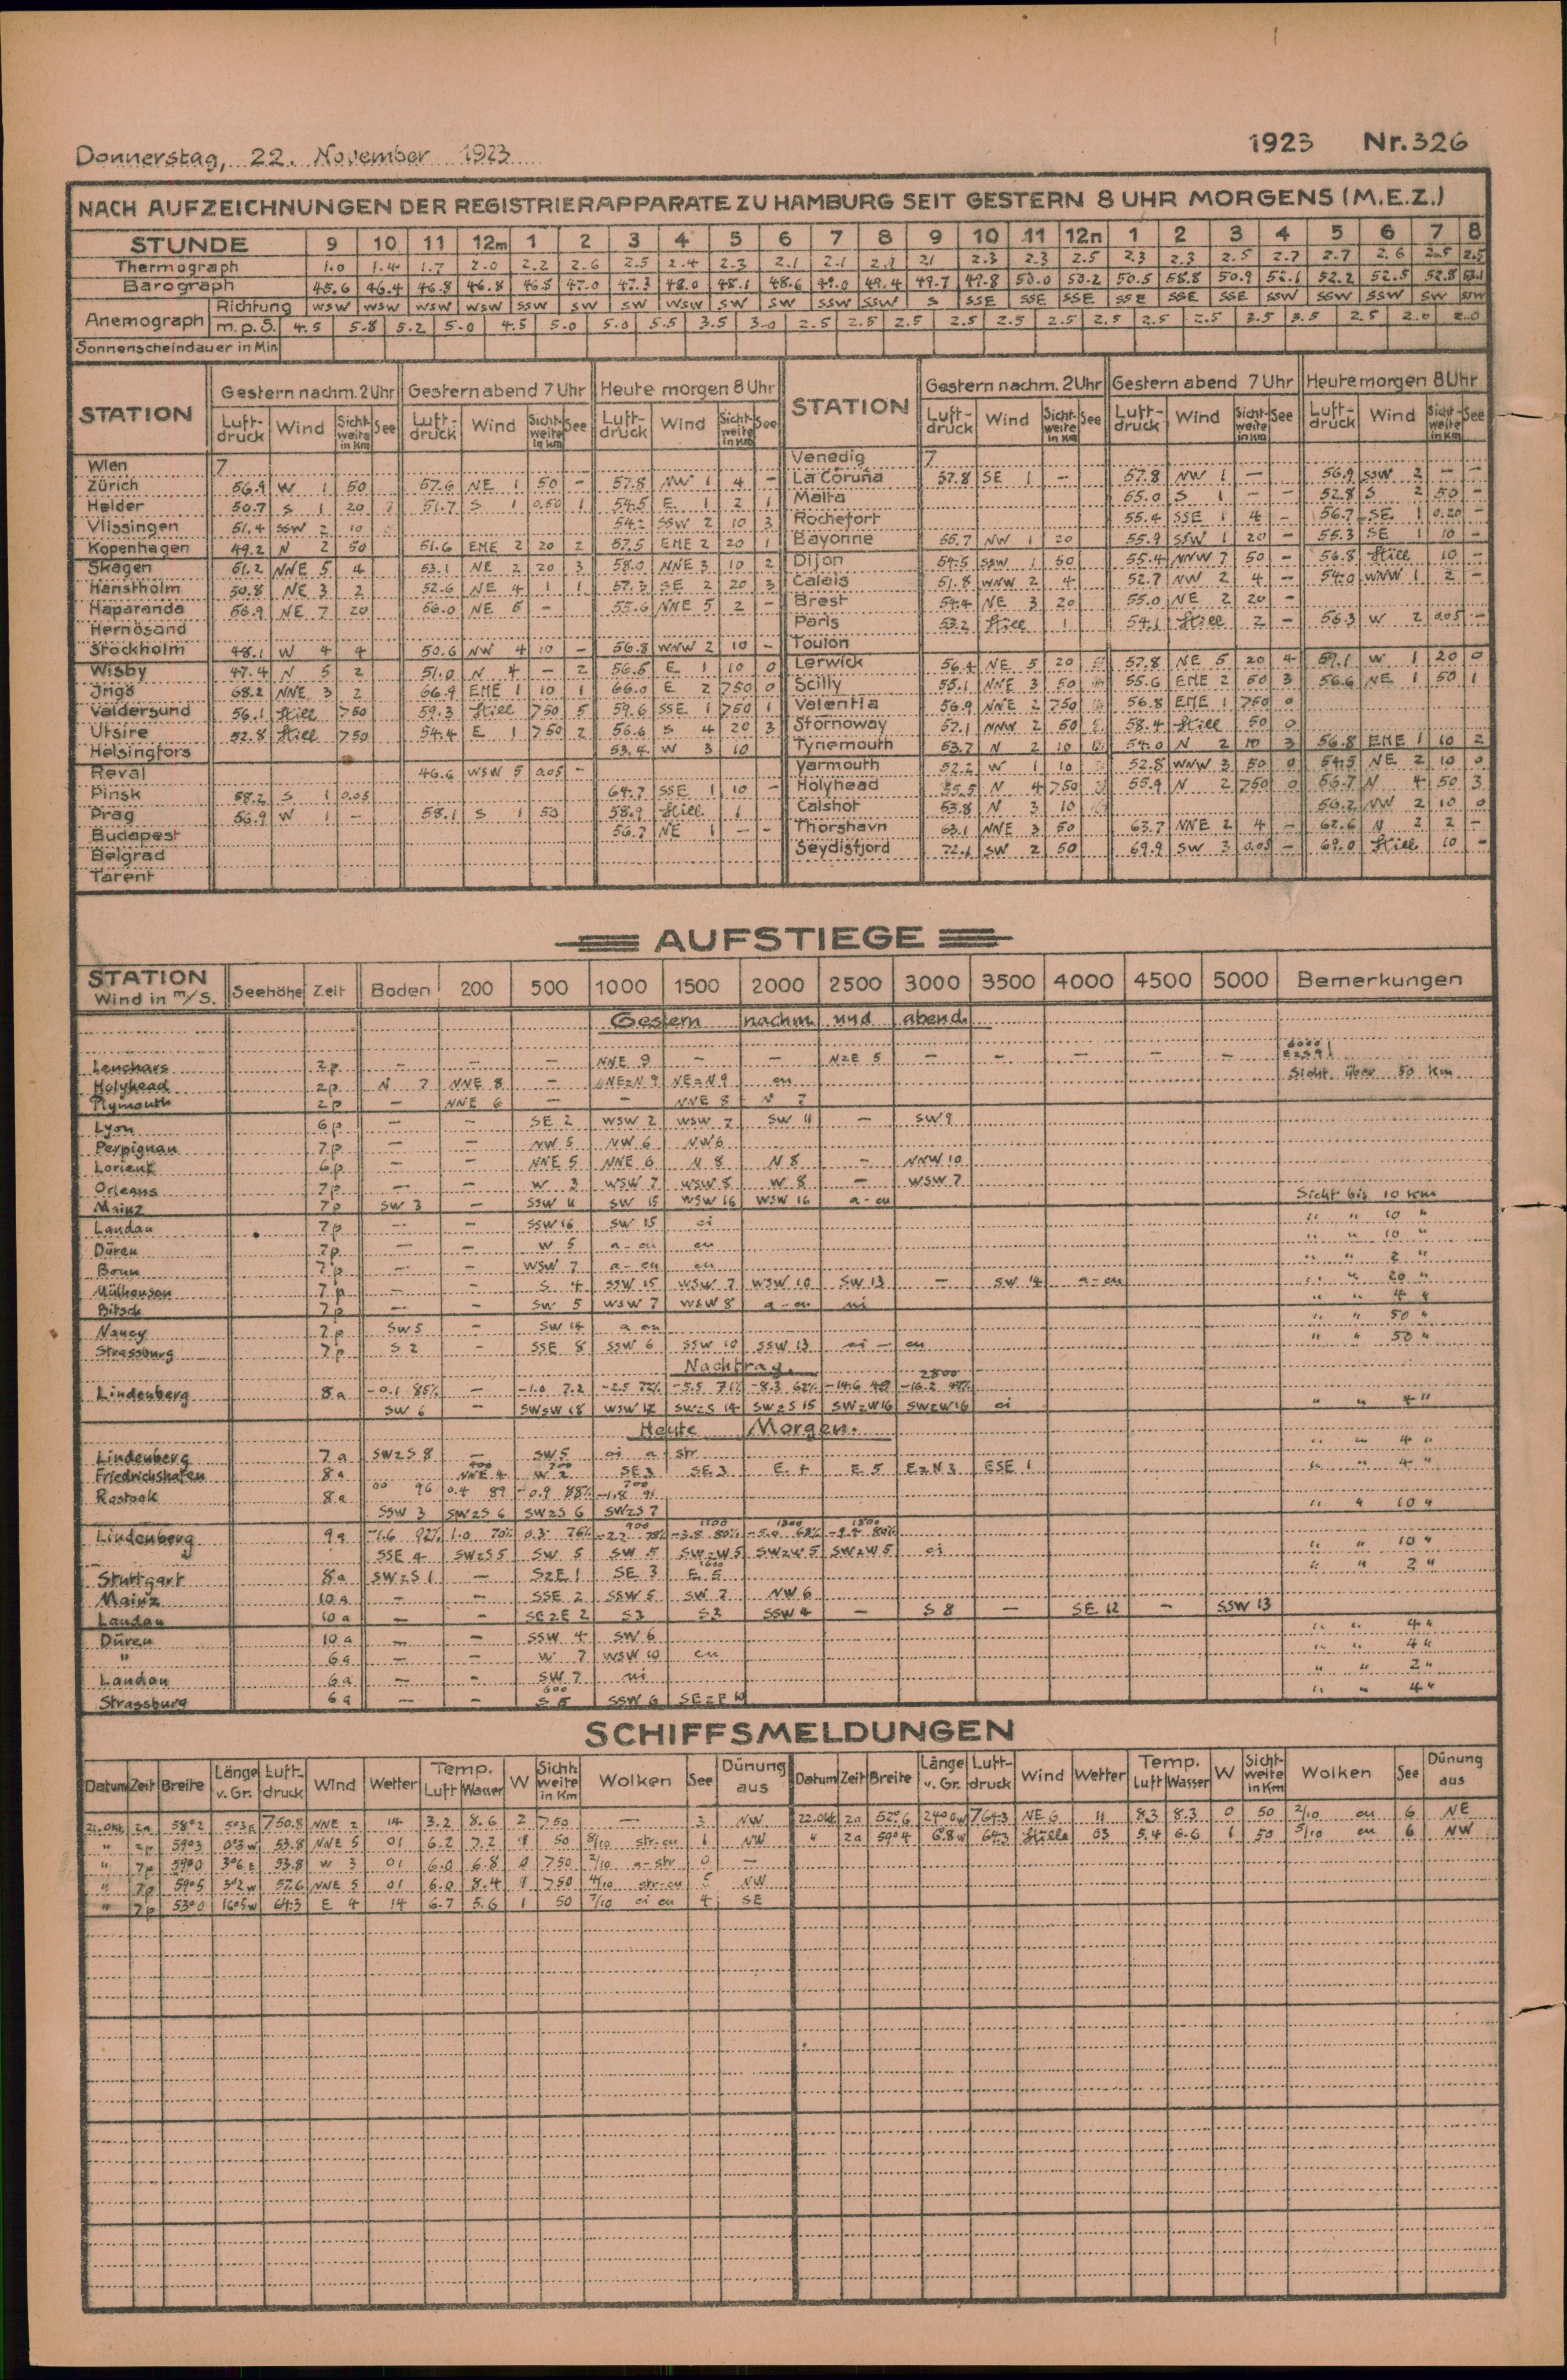 Donnerstag, 22. November 1923
1923 Nr. 326
NACH AUFZEICHNUNGEN DER REGISTRIERAPPARATE ZU HAMBURG SEIT GESTERN 8 UHR MORGENS (M.E.Z.)
STUNDE 9 10 11 12m 1 2 3 4 5 6 7 8 9 10 11 12n 1 2 3 4 5 6 7 8
Thermograph 1.0 1.4 1.7 2.0 2.2 2.6 2.5 2.4 2.3 2.1 2.1 2.1 2.1 2.3 2.3 2.5 2.3 2.3 2.5 2.7 2.7 2.6 2.5 2.5
Barograph 45.6 46.4 46.8 46.8 46.8 47.0 47.3 48.0 48.1 48.6 49.0 49.4 49.7 49.8 50.0 50.2 50.5 58.8 50.9 52.1 52.2 52.5 52.8 53.1
Anemograph Richtung WSW WSW WSW WSW SSW SW SW WSW SW SW SSW SSW S SSE SSE SSE SSE SSE SSE SSW SSW SSW SW SSW
m.p.S. 4.5 5.8 5.2 5.0 4.5 5.0 5.0 5.5 3.5 3.0 2.5 2.5 2.5 2.5 2.5 2.5 2.5 2.5 2.5 3.5 3.5 2.5 2.0 2.0
Sonnenscheindauer in Min
STATION Gestern nachm. 2 Uhr Gestern abend 7 Uhr Heute morgen 8 Uhr STATION Gestern nachm. 2 Uhr Gestern abend 7 Uhr Heute morgen 8 Uhr
Luft-druck Wind Sicht-weite in Km See Luft-druck Wind Sicht-weite in Km See Luft-druck Wind Sicht-weite in Km See Luft-druck Wind Sicht-weite in Km See Luft-druck Wind Sicht-weite in Km See Luft-druck Wind Sicht-weite in Km See
Wien 7 Venedig 7
Zürich 56.9 W 1 50 57.6 NE 1 50 – 57.8 NW 1 4 – La Coruña 57.8 SE 1 – 57.8 NW 1 – 56.9 SSW 2 – –
Helder 50.7 S 1 20 51.7 S 1 0.50 1 54.5 E 1 2 1 Malta 55.0 S 1 – – 52.8 S 2 50 –
Vlissingen 51.4 SSW 2 10 54.2 SSW 2 10 3 Rochefort 55.4 SSE 1 4 – 56.7 SE 1 0.20 –
Kopenhagen 49.2 N 2 50 51.6 ENE 2 20 2 57.5 ENE 2 20 1 Bayonne 55.7 NW 1 20 55.9 SSW 1 20 – 55.3 SE 1 10 –
Skagen 51.2 NNE 5 4 53.1 NE 2 20 3 58.0 NNE 3 10 2 Dijon 54.5 SSW 1 50 55.4 NNW 7 50 – 56.8 Still 10 –
Hanstholm 50.8 NE 3 2 52.6 NE 4 1 1 57.3 SE 2 20 3 Calais 51.8 WNW 2 4 52.7 NW 2 4 – 54.0 WNW 1 2 –
Haparanda 56.9 NE 7 20 56.0 NE 5 – 55.6 NNE 5 2 – Brest 54.4 NE 3 20 55.0 NE 2 20 –
Hernösand Paris 53.2 Still 1 54.1 Still 2 – 56.3 W 2 0.05 –
Stockholm 48.1 W 4 4 50.6 NW 4 10 – 56.8 WNW 2 10 – Toulon
Wisby 47.4 N 5 2 51.0 N 4 – 2 56.5 E 1 10 0 Lerwick 56.4 NE 5 20 57.8 NE 5 20 4 57.1 W 1 20 0
Ingö 68.2 NNE 3 2 66.9 ENE 1 10 1 66.0 E 2 750 0 Scilly 55.1 NNE 3 50 55.6 ENE 2 50 3 56.6 NE 1 50 1
Valdersund 56.1 Still 750 59.3 Still 750 5 59.6 SSE 1 750 1 Valentia 56.9 NNE 2 750 56.8 ENE 1 750 0
Utsire 52.8 Still 750 54.4 E 1 750 2 56.6 S 4 20 3 Stornoway 57.1 NNW 2 50 58.4 Still 50 0
Helsingfors 53.4 W 3 10 Tynemouth 53.7 N 2 10 54.0 N 2 10 3 56.8 ENE 1 10 2
Reval 46.6 WSW 5 0.05 – Yarmouth 52.2 W 1 10 52.8 WNW 3 50 0 54.5 NE 2 10 0
Pinsk 58.2 S 1 0.05 64.7 SSE 1 10 – Holyhead 55.5 N 4 750 55.9 N 2 750 0 56.7 N 4 50 3
Prag 56.9 W 1 – 58.1 S 1 50 58.9 Still 1 Calshot 53.8 N 3 10 56.2 NW 2 10 0
Budapest 56.2 NE 1 – – Thorshavn 63.1 NNE 3 50 63.7 NNE 2 4 – 62.6 N 2 2 –
Belgrad Seydisfjord 72.1 SW 2 50 69.9 SW 3 0.05 – 69.0 Still 10 –
Tarent
AUFSTIEGE
STATION Wind in m/S. Seehöhe Zeit Boden 200 500 1000 1500 2000 2500 3000 3500 4000 4500 5000 Bemerkungen
Gestern nachm. und abend.
Leuchars 2p – – – NNE 9 – – NzE 5 – – – – – 6000 EzS 9
Holyhead 2p N 7 NNE 8 – NEzN 9 NEzN 9 cu Sicht über 50 Km
Plymouth 2p – NNE 6 – – NNE 8 N 7
Lyon 6p – – SE 2 WSW 2 WSW 7 SW 11 – SW 9
Perpignan 7p – – NW 5 NW 6 NW 6
Lorient 6p – – NNE 5 NNE 6 N 8 N 8 – NNW 10
Orleans 7p – – W 3 WSW 7 WSW 8 W 8 – WSW 7
Mainz 7p SW 3 – SSW 11 SW 15 WSW 16 WSW 16 a-cu Sicht bis 10 Km
Landau 7p – – SSW 16 SW 15 ci " " 10 "
Düren 7p – – W 5 a-cu cu " " 10 "
Bonn 7p – – WSW 7 a-cu cu " " 2 "
Mülhausen 7p – – S 4 SSW 15 WSW 7 WSW 10 SW 13 – SW 14 a-cu " " 20 "
Bitsch 7p – – SW 5 WSW 7 WSW 8 a-cu ni " " 4 "
Nancy 7p SW 5 – SW 14 a cu " " 50 "
Strassburg 7p S 2 – SSE 8 SSW 6 SSW 10 SSW 13 ci – cu " " 50 "
Nachtrag.
2800
Lindenberg 8a -0.1 85% – -1.0 7.2 -2.5 72% -5.5 71% -8.3 62% -14.6 49 -16.2 47%
SW 6 – SWSW 18 WSW 12 SWzS 14 SWzS 15 SWzW 16 SWzW 16 ci " " 4 "
Heute Morgen.
Lindenberg 7a SWzS 8 – SW 5 ci a str " " 4 "
Friedrichshafen 8a 400 NNE 4 700 W 2 SE 3 SE 3 E 4 E 5 EzN 3 ESE 1 " " 4 "
Rostock 8a 00 96 0.4 89 -0.9 88% 700 -1.8 91
SSW 3 SWzS 6 SWzS 6 SWzS 7 " " 10 "
900 1100 1300 1800
Lindenberg 9a -1.6 92% 1.0 70% 0.3 76% -2.2 78% -3.8 80% -5.0 68% -9.4 80%
SSE 4 SWzS 5 SW 5 SW 5 SWzW 5 SWzW 5 SWzW 5 ci " " 10 "
Stuttgart 8a SWzS 1 – SzE 1 SE 3 1600 E 5 " " 2 "
Mainz 10a – – SSE 2 SSW 5 SW 7 NW 6
Landau 10a – – SEzE 2 S 3 S 3 SSW 4 – S 8 – SE 12 – SSW 13
Düren 10a – – SSW 4 SW 6 " " 4 "
" 6a – – W 7 WSW 10 cu " " 4 "
Landau 6a – – SW 7 ni " " 2 "
Strassburg 6a – – 600 S 5 SSW 6 SEzE 10 " " 4 "
SCHIFFSMELDUNGEN
Datum Zeit Breite Länge v. Gr. Luft-druck Wind Wetter Temp. Luft Wasser W Sicht-weite in Km Wolken See Dünung aus Datum Zeit Breite Länge v. Gr. Luft-druck Wind Wetter Temp. Luft Wasser W Sicht-weite in Km Wolken See Dünung aus
21.Okt 2a 58°2 5°3 E 750.8 NNE 2 14 3.2 8.6 2 750 — 3 NW 22.Okt 2a 52°6 24°0 W 764.3 NE 6 11 8.3 8.3 0 50 2/10 cu 6 NE
" 2p 59°3 0°3 W 53.8 NNE 5 01 6.2 7.2 1 50 5/10 str-cu 1 NW " 2a 59°4 6°8 W 64.3 Stille 03 5.4 6.6 1 50 5/10 cu 6 NW
" 7p 59°0 3°6 E 53.8 W 3 01 6.0 6.8 0 750 2/10 a-str 0 —
" 7p 59°5 3°2 W 57.6 NNE 5 01 6.0 8.4 9 750 4/10 str-cu 5 NW
" 7p 53°0 16°5 W 64.3 E 4 14 6.7 5.6 1 50 7/10 ci cu 4 SE